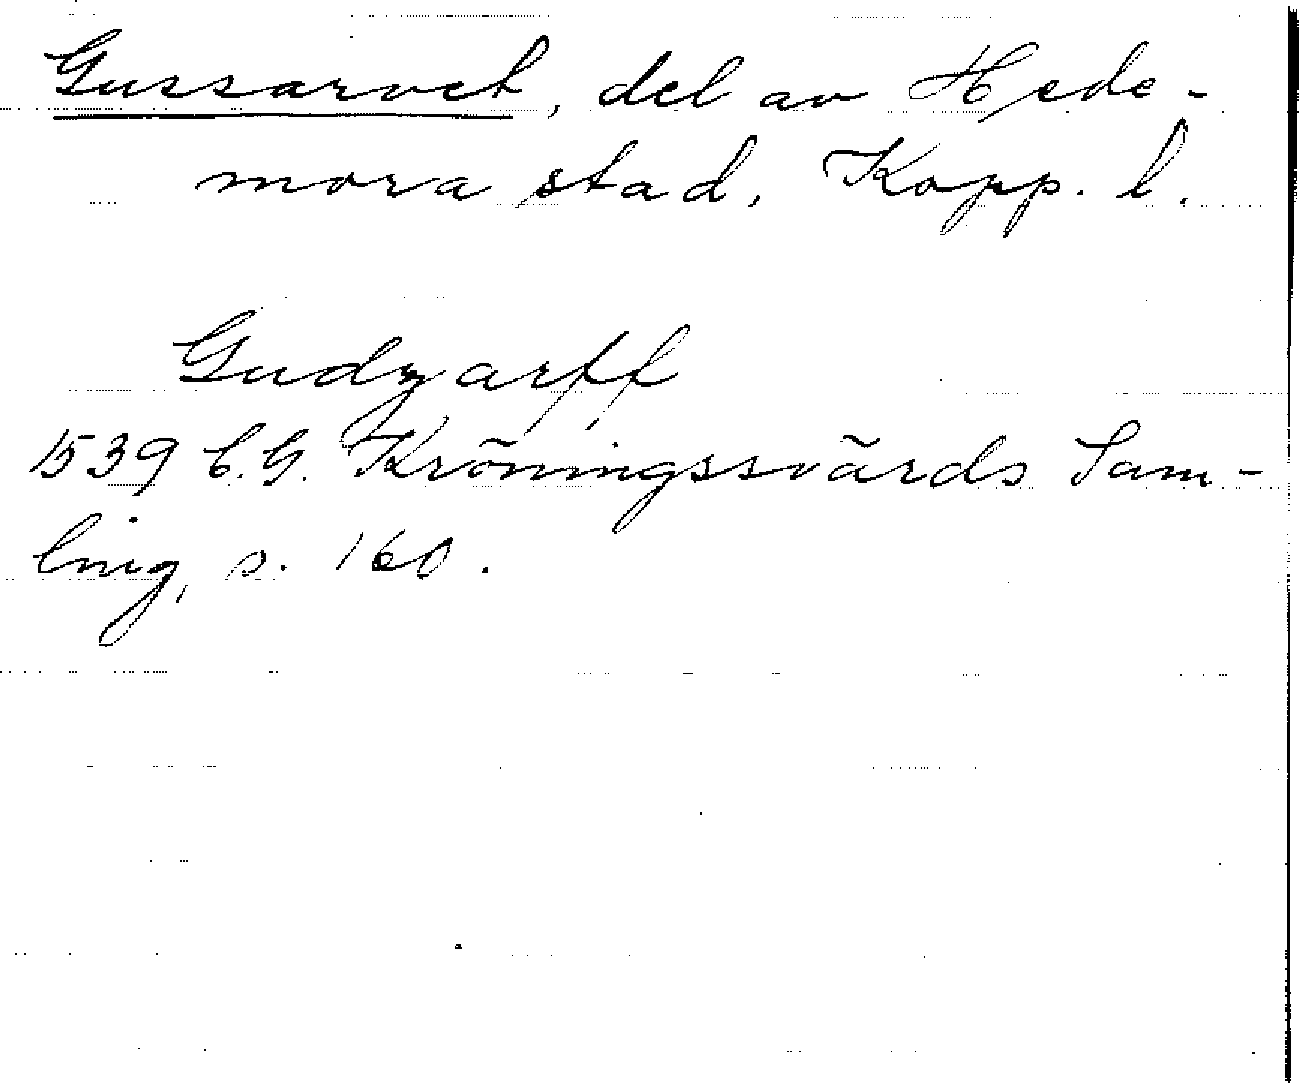 Gussarvet, del av Hede-
mora stad, Kopp. l.
Gudzarff
1539 C.G. Kröningssvärds Sam-
ling, s. 160.